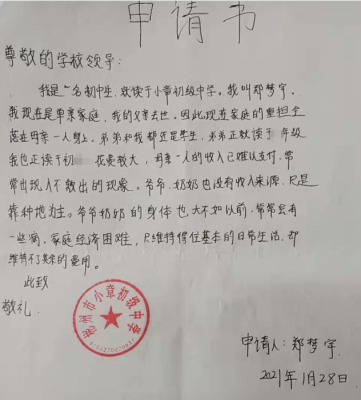 申请书
尊敬的学校领导:
我是一名初中生,就读于小章初级中学。我叫郑梦宇,
我现在是单亲家庭,我的父亲去世。因此,现在家庭的重担全
落在母亲一人身上,弟弟和我都还是学生,弟弟正就读于 年级
我也正读于初 花费较大,母亲一人的收入已难以支付,常
常出现入不敷出的现象。爷爷、奶奶也没有收入来源,只是
靠种地为主。爷爷奶奶的身体也大不如以前,常常会有
一些病,家庭经济困难,只维持得住基本的日常生活,却
维持不了其余的费用。
此致
敬礼
州市小章初级中学
申请人:郑梦宇
2021年1月28日